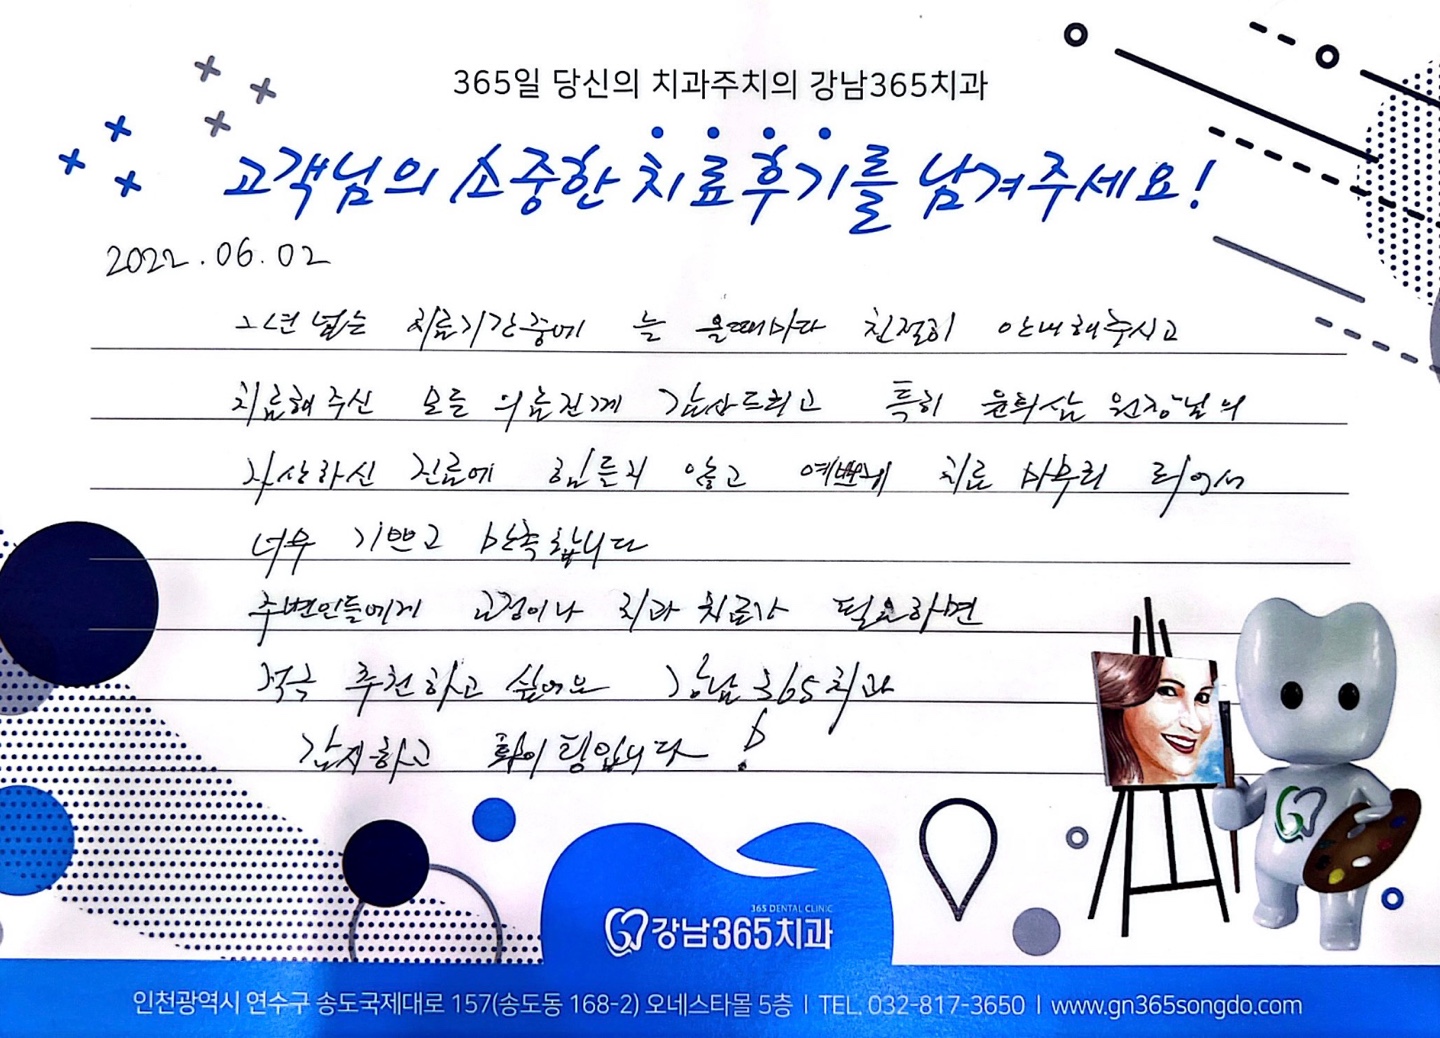 365일 당신의 치과주치의 강남365치과
고객님의 소중한 치료후기를 남겨주세요!
2022.06.02
2년 넘는 치료기간중에 늘 올때마다 친절히 안내해주시고
치료해주신 모든 의료진께 감사드리고 특히 윤희삼 원장님의
자상하신 진료에 힘들지 않고 예쁘게 치료 마무리 되어서
너무 기쁘고 만족합니다
주변인들에게 교정이나 치과 치료가 필요하면
적극 추천하고 싶어요 강남 365 치과
감사하고 화이팅입니다!
365 DENTAL CLINIC
강남365치과
인천광역시 연수구 송도국제대로 157(송도동 168-2) 오네스타몰 5층 | TEL. 032-817-3650 | www.gn365songdo.com